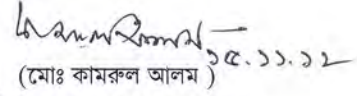 ১৫.১১.১২
(মোঃ কামরুল আলম)